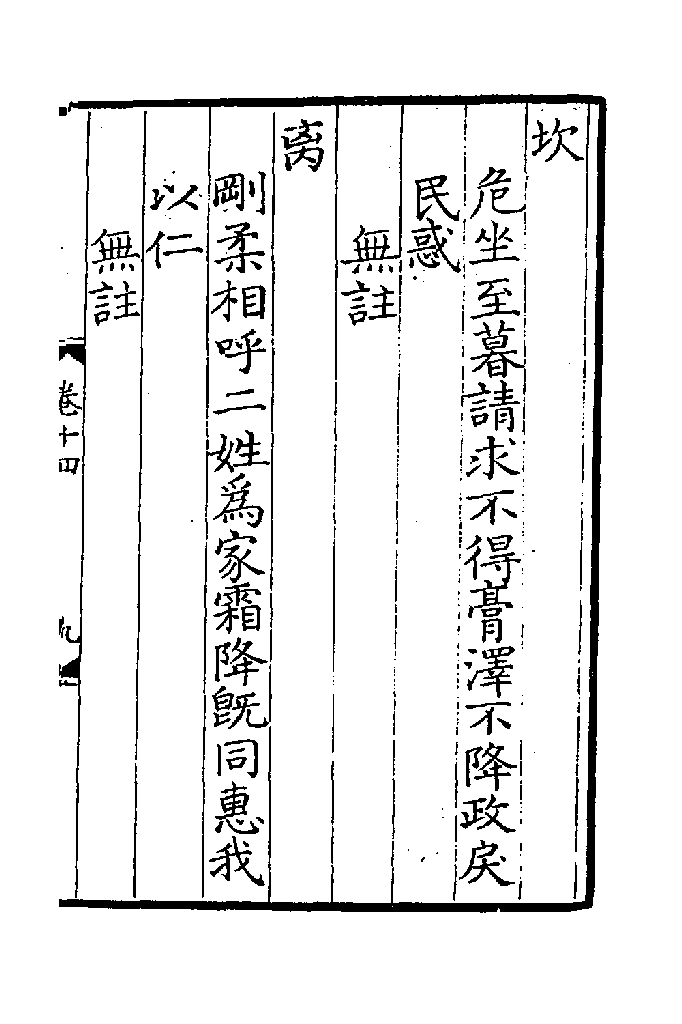 坎
危坐至暮請求不得膏澤不降政戾
民惑
無註
离
剛柔相呼二姓爲家霜降旣同惠我
以仁
無註
卷十四
九